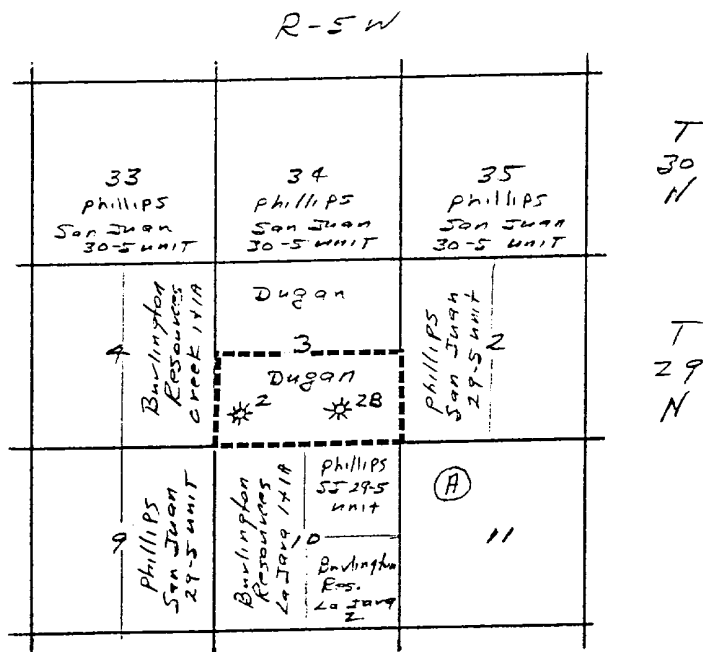 R-5W
T
30
N
33
phillips
San Juan
30-5 unit
34
phillips
San Juan
30-5 unit
35
phillips
San Juan
30-5 unit
T
29
N
4
Burlington
Resources
Creek 1+1A
Dugan
3
Dugan
2
2B
phillips
San Juan
29-5 unit
2
9
phillips
San Juan
29-5 unit
Burlington
Resources
La Jara 1+1A
10
phillips
SJ 29-5
unit
Burlington
Res.
La Jara
2
A
11